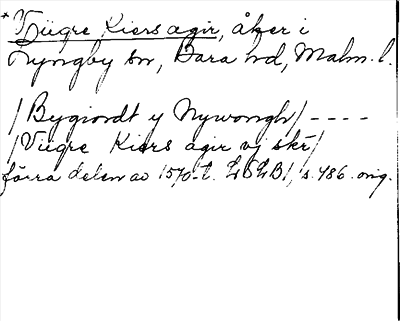 * Viigre Kiers agir, åker i
Lyngby sn, Bara hd, Malm. l.
/Bygiordt y Nywongh/----
/Viigre Kiers agir vj skr/
förra delen av 1570-t. LSLB1, s. 486. orig.